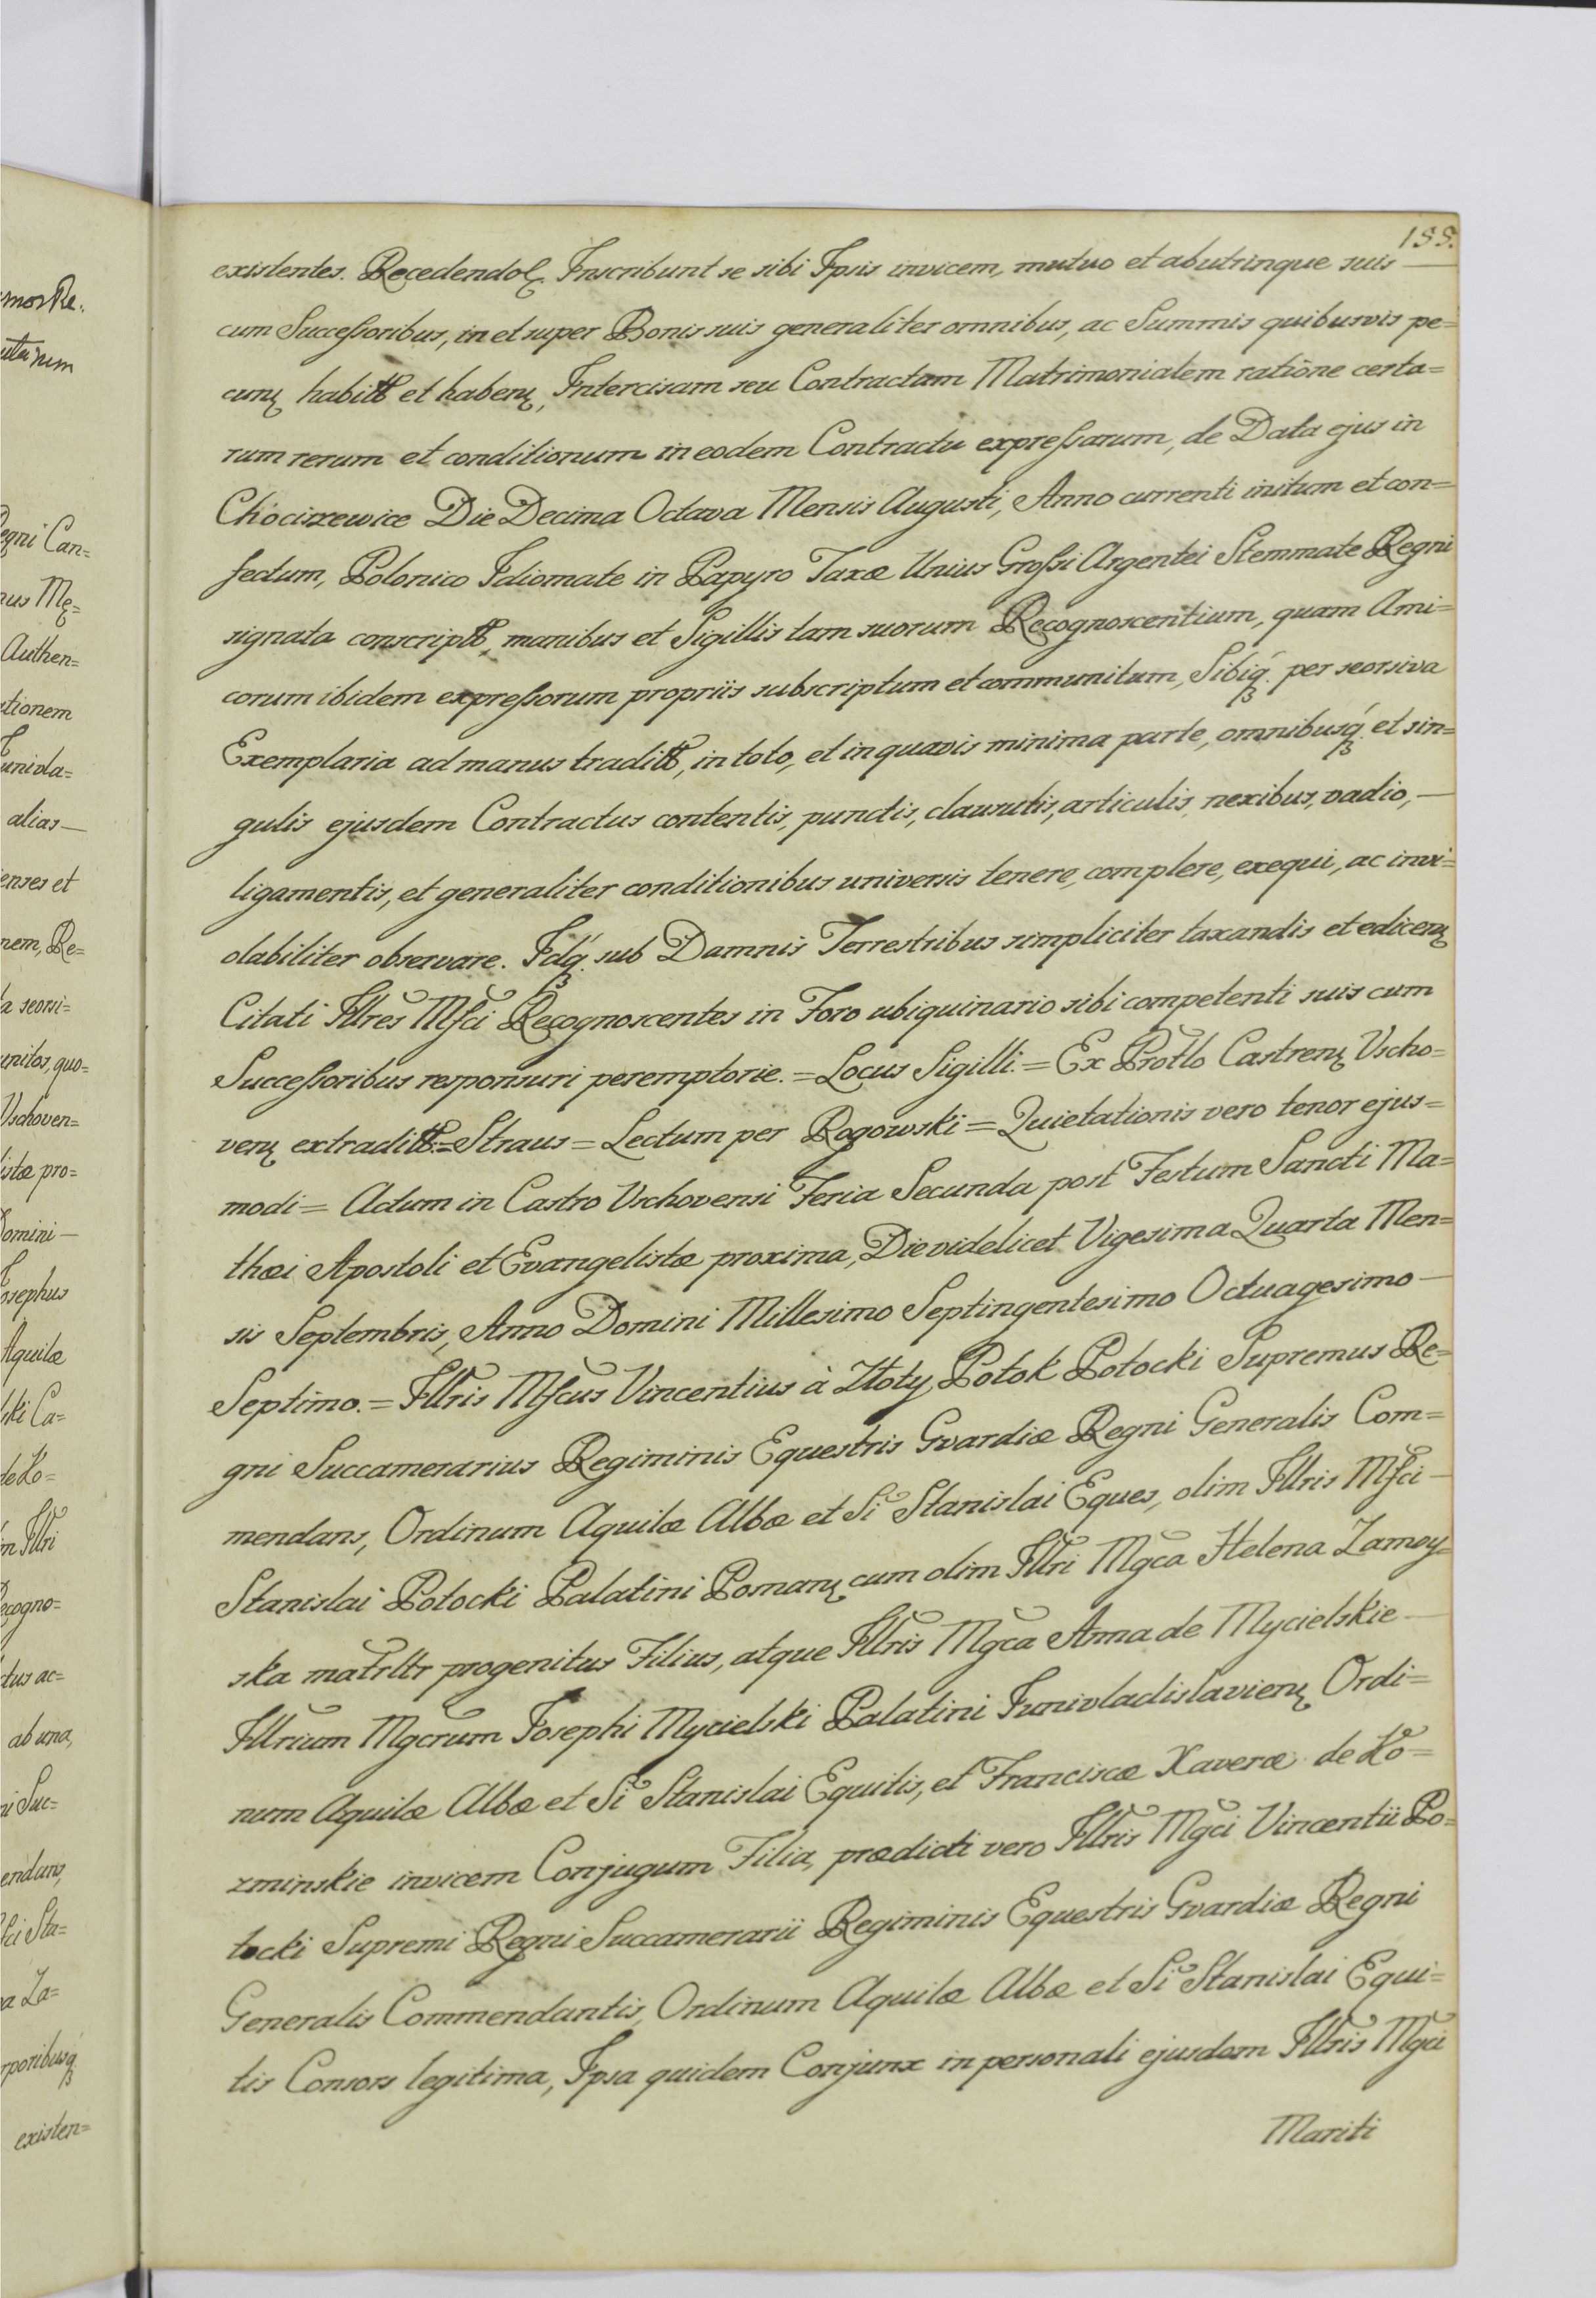 155.
existentes. Recedendo etc. Inscribunt se sibi Ipsis invicem, mutuo et abutrinque suis —
cum Successoribus, in et super Bonis suis generaliter omnibus, ac Summis quibusvis pe=
cunꝫ habitt et habenꝫ, Intercisam seu Contractam Matrimonialem ratiōne certa=
rum rerum et conditionum in eodem Contractu expressarum, de Data ejus in
Chociszewice Die Decima Octava Mensis Augusti, Anno currenti initum et con=
fectum, Polonico Idiomate in Papyro Taxæ Unius Grossi Argentei Stemmate Regni
signata conscriptt, manibus et Sigillis tam suorum Recognoscentium, quam Ami=
corum ibidem expressorum propriis subscriptum et communitum, Sibiq́ꝫ per seorsiva
Exemplaria ad manus traditt, in toto, et in quavis minima parte, omnibusq́ꝫ et sin=
gulis ejusdem Contractus contentis, punctis, clausulis, articulis, nexibus, vadio, —
ligamentis, et generaliter conditionibus universis tenere, complere, exequi, ac invi=
olabiliter observare. Idq́ꝫ sub Damnis Terrestribus simpliciter taxandis et edicenꝫ
Citati Illres Mfci Recognoscentes in Foro ubiquinario sibi competenti suis cum
Successoribus responsuri peremptorie. = Locus Sigilli. = Ex Protlo Castrenꝫ Vscho=
venꝫ extraditt. = Straus = Lectum per Rogowski = Quietationis vero tenor ejus=
modi = Actum in Castro Vschovensi Feria Secunda post Festum Sancti Ma=
thæi Apostoli et Evangelistæ proxima, Die videlicet Vigesima Quarta Men=
sis Septembris, Anno Domini Millesimo Septingentesimo Octuagesimo —
Septimo. = Illris Mfcus Vincentius à Złoty Potok Potocki Supremus Re=
gni Succamerarius Regiminis Equestris Gvardiæ Regni Generalis Com=
mendans, Ordinum Aquilæ Albæ et Si Stanislai Eques, olim Illris Mfci —
Stanislai Potocki Palatini Posnanꝫ cum olim Illri Mgca Helena Zamoy=
ska matrltr progenitus Filius, atque Illris Mgca Anna de Mycielskie —
Illrium Mgcrum Josephi Mycielski Palatini Junivladislavienꝫ Ordi=
num Aquilæ Albæ et Si Stanislai Equitis, et Franciscæ Xaveræ de Ko=
zminskie invicem Conjugum Filia, prædicti vero Illris Mgci Vincentii Po=
tocki Supremi Regni Succamerarii Regiminis Equestris Gvardiæ Regni
Generalis Commendantis, Ordinum Aquilæ Albæ et Si Stanislai Equi=
tis Consors legitima, Ipsa quidem Conjunx in personali ejusdem Illris Mgci
Mariti